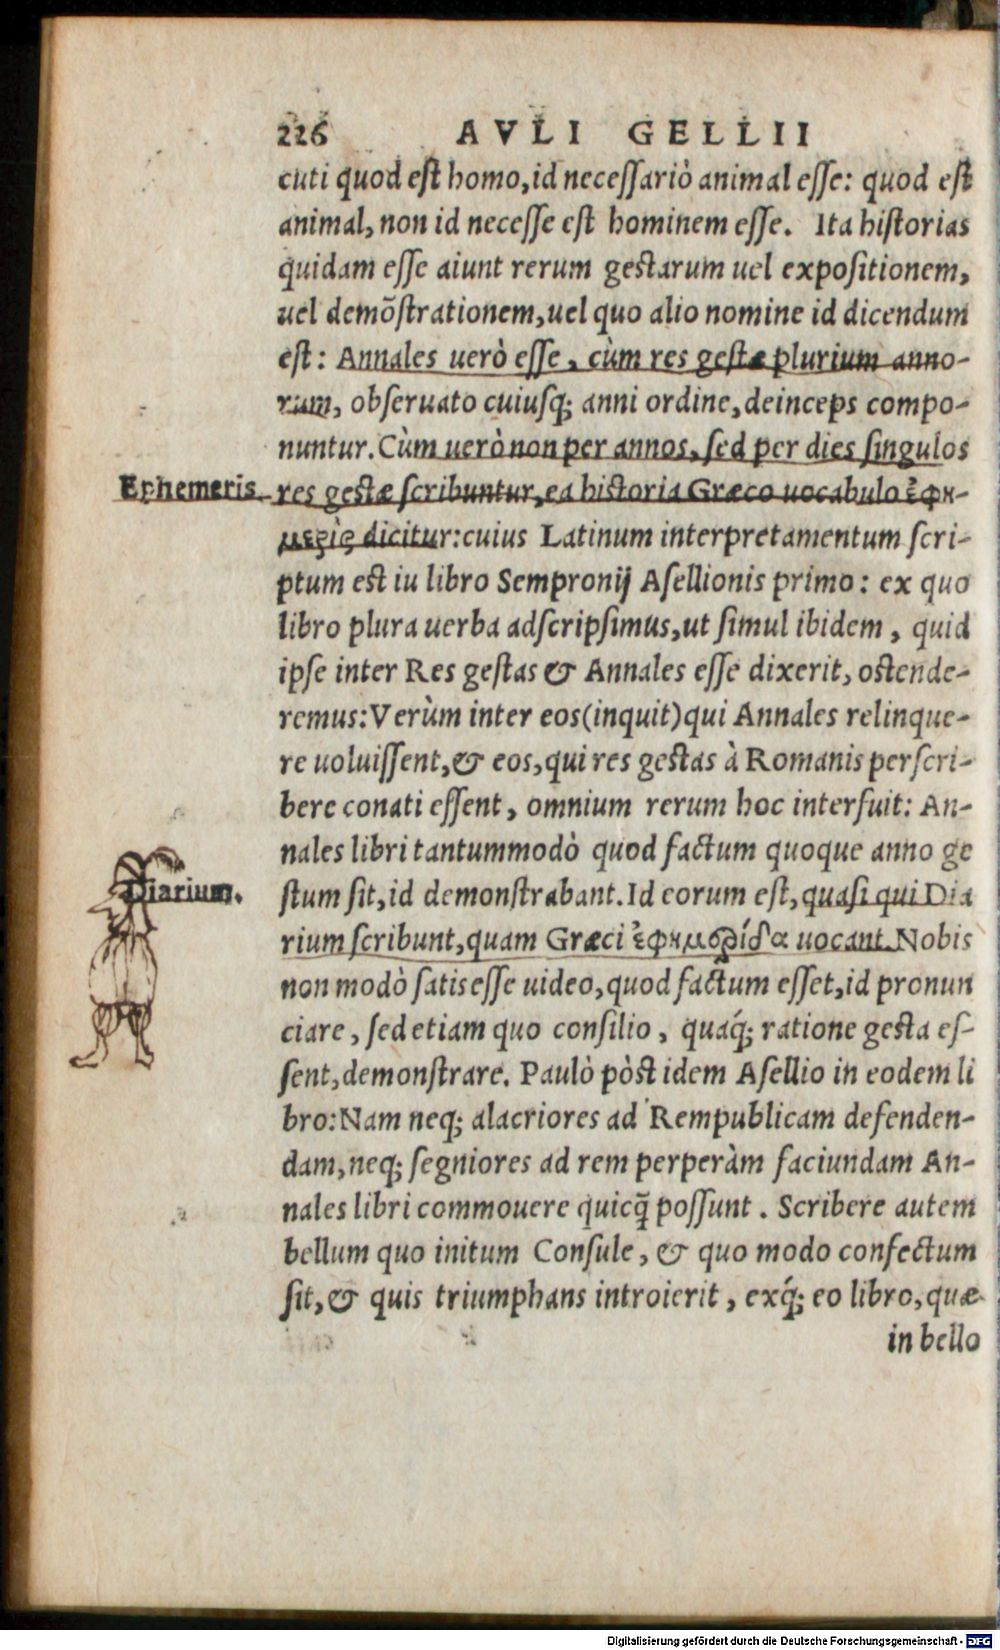 226 AVLI GELLII
cuti quod est homo, id necessariò animal esse: quod est
animal, non id necesse est hominem esse. Ita historias
quidam esse aiunt rerum gestarum uel expositionem,
uel demõstrationem, uel quo alio nomine id dicendum
est: Annales uerò esse, cùm res gestæ plurium anno-
rum, obseruato cuiusq; anni ordine, deinceps compo-
nuntur. Cùm uerò non per annos, sed per dies singulos
Ephemeris
res gestæ scribuntur, ea historia Græco uocabulo ἐφη-
μερὶς dicitur: cuius Latinum interpretamentum scri-
ptum est iu libro Sempronij Asellionis primo: ex quo
libro plura uerba adscripsimus, ut simul ibidem, quid
ipse inter Res gestas & Annales esse dixerit, ostende-
remus: Verùm inter eos (inquit) qui Annales relinque-
re uoluissent, & eos, qui res gestas à Romanis perscri-
bere conati essent, omnium rerum hoc interfuit: An-
nales libri tantummodò quod factum quoque anno ge
Diarium.
stum sit, id demonstrabant. Id eorum est, quasi qui Dia
rium scribunt, quam Græci ἐφημερίδα uocant. Nobis
non modò satis esse uideo, quod factum esset, id pronun
ciare, sed etiam quo consilio, quaq́; ratione gesta es-
sent, demonstrare. Paulò pòst idem Asellio in eodem li
bro: Nam neq; alacriores ad Rempublicam defenden-
dam, neq; segniores ad rem perperàm faciundam An-
nales libri commouere quicq̃ possunt. Scribere autem
bellum quo initum Consule, & quo modo confectum
sit, & quis triumphans introierit, exq́; eo libro, quæ
in bello
Digitalisierung gefördert durch die Deutsche Forschungsgemeinschaft - DFG